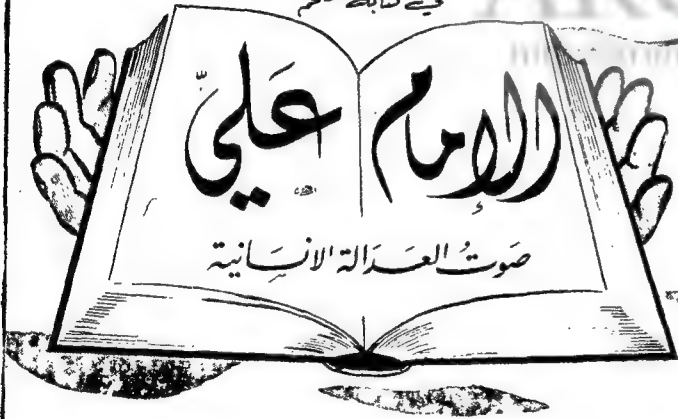 في كتابه
الإمام عَليّ
صَوتُ العَدَالة الانسَانية